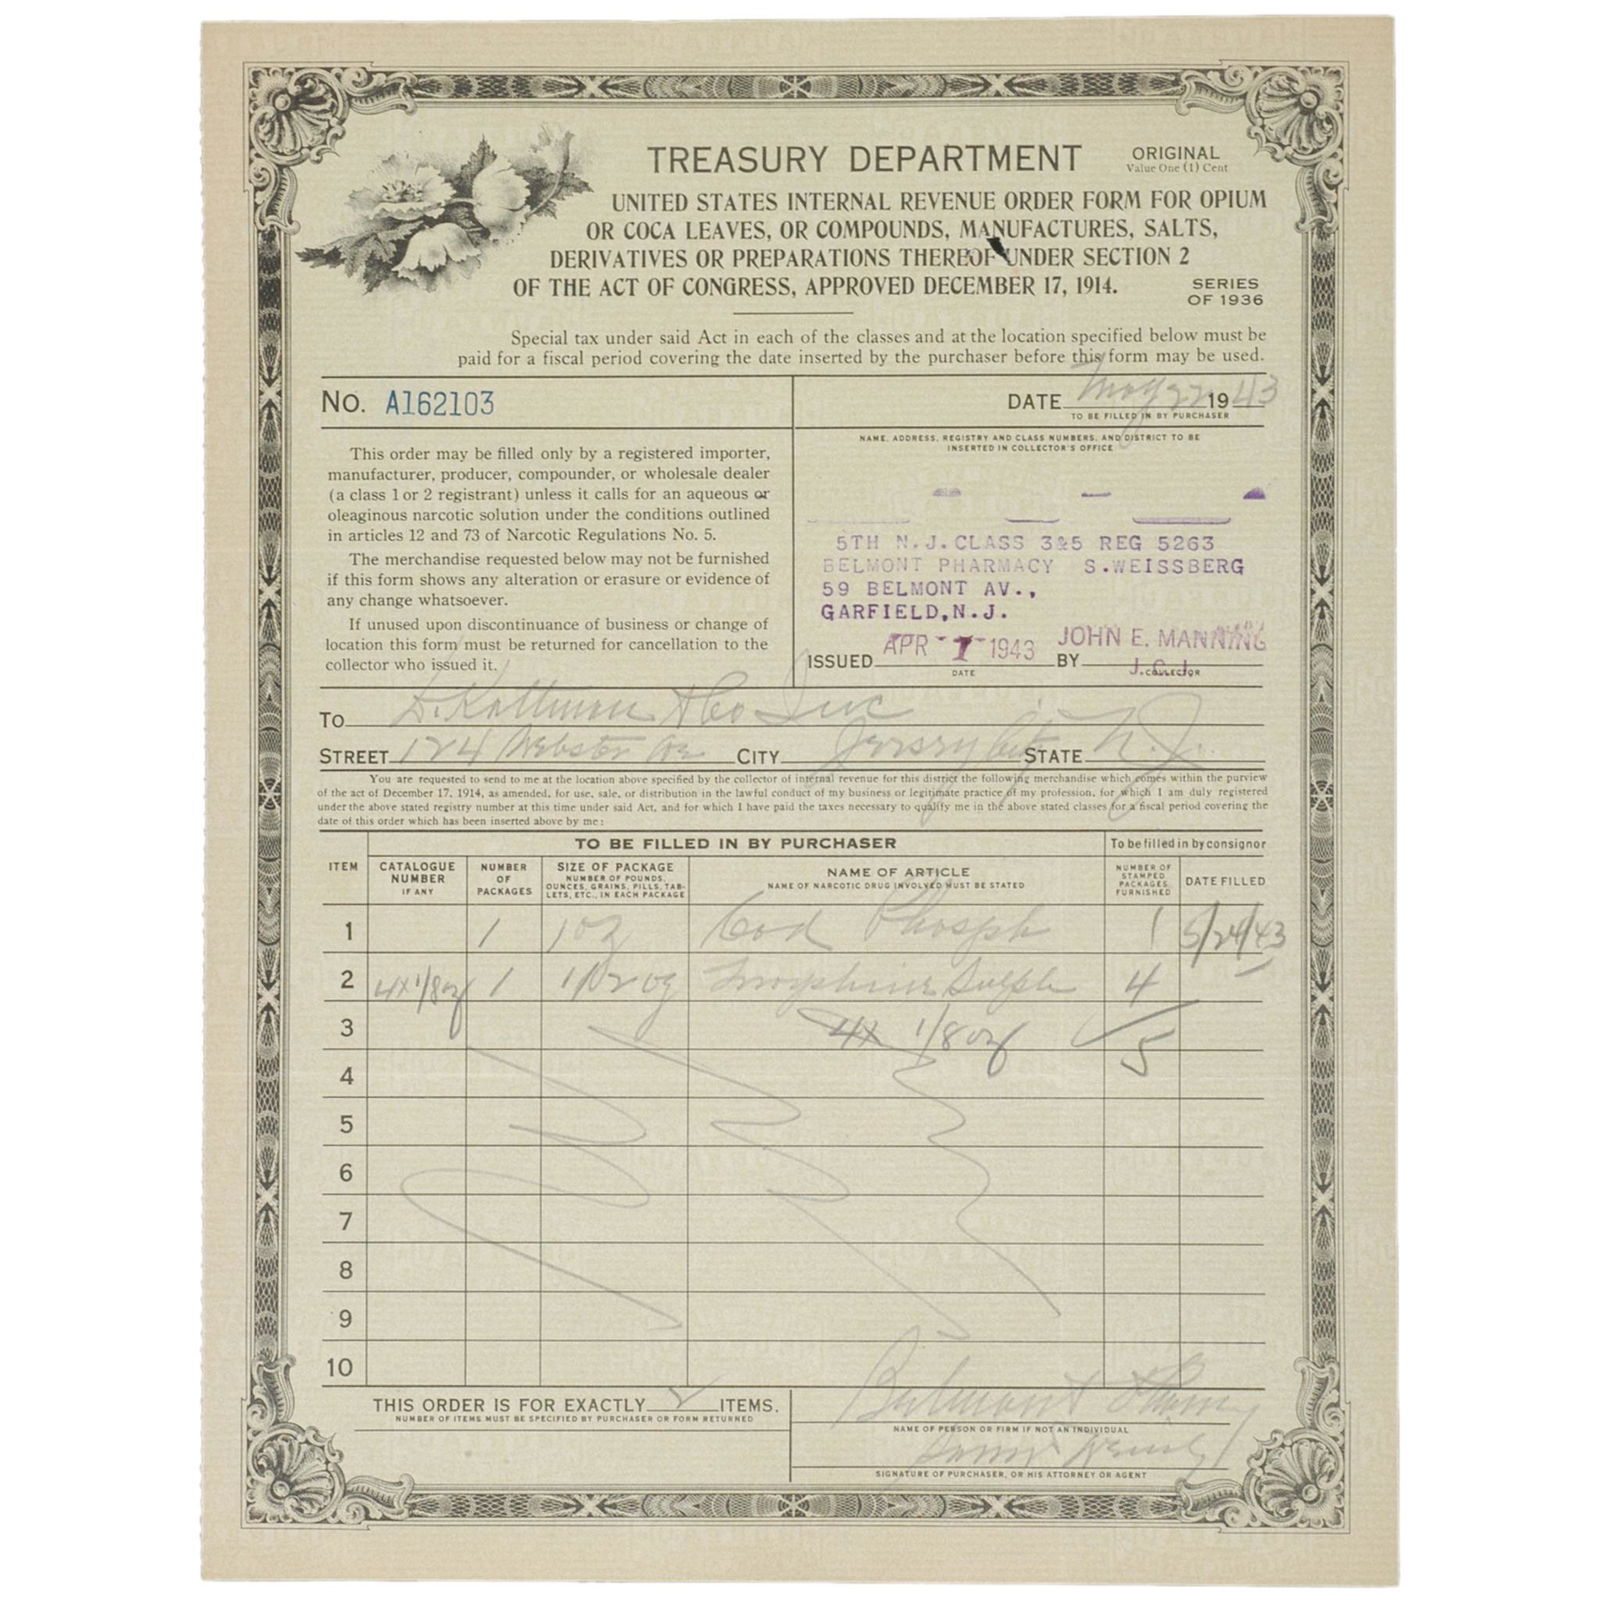 TREASURY DEPARTMENT
ORIGINAL
Value One (1) Cent
UNITED STATES INTERNAL REVENUE ORDER FORM FOR OPIUM
OR COCA LEAVES, OR COMPOUNDS, MANUFACTURES, SALTS,
DERIVATIVES OR PREPARATIONS THEREOF UNDER SECTION 2
OF THE ACT OF CONGRESS, APPROVED DECEMBER 17, 1914.
SERIES
OF 1936
Special tax under said Act in each of the classes and at the location specified below must be
paid for a fiscal period covering the date inserted by the purchaser before this form may be used.
No. A162103
DATE May 22 1943
TO BE FILLED IN BY PURCHASER
This order may be filled only by a registered importer,
manufacturer, producer, compounder, or wholesale dealer
(a class 1 or 2 registrant) unless it calls for an aqueous or
oleaginous narcotic solution under the conditions outlined
in articles 12 and 73 of Narcotic Regulations No. 5.
The merchandise requested below may not be furnished
if this form shows any alteration or erasure or evidence of
any change whatsoever.
If unused upon discontinuance of business or change of
location this form must be returned for cancellation to the
collector who issued it.
NAME, ADDRESS, REGISTRY AND CLASS NUMBERS, AND DISTRICT TO BE
INSERTED IN COLLECTOR'S OFFICE
5TH N.J.CLASS 3&5 REG 5263
BELMONT PHARMACY S.WEISSBERG
59 BELMONT AV.,
GARFIELD,N.J.
ISSUED APR - 1 1943 BY JOHN E. MANNING
DATE
COLLECTOR
To D. Kaltman & Co Inc
STREET 124 Webster Ave CITY Jersey City STATE N.J.
You are requested to send to me at the location above specified by the collector of internal revenue for this district the following merchandise which comes within the purview
of the act of December 17, 1914, as amended, for use, sale, or distribution in the lawful conduct of my business or legitimate practice of my profession, for which I am duly registered
under the above stated registry number at this time under said Act, and for which I have paid the taxes necessary to qualify me in the above stated classes for a fiscal period covering the
date of this order which has been inserted above by me:
TO BE FILLED IN BY PURCHASER
To be filled in by consignor
ITEM
CATALOGUE
NUMBER
IF ANY
NUMBER
OF
PACKAGES
SIZE OF PACKAGE
NUMBER OF POUNDS,
OUNCES, GRAINS, PILLS, TAB-
LETS, ETC., IN EACH PACKAGE
NAME OF ARTICLE
NAME OF NARCOTIC DRUG INVOLVED MUST BE STATED
NUMBER OF
STAMPED
PACKAGES
FURNISHED
DATE FILLED
1 1 1 oz Cod Phosph 1 5/24/43
2 4x1/8oz 1 1/2 oz Morphine Sulph 4
3 4x 1/8 oz 5
4
5
6
7
8
9
10
THIS ORDER IS FOR EXACTLY 2 ITEMS.
NUMBER OF ITEMS MUST BE SPECIFIED BY PURCHASER OR FORM RETURNED
Belmont Pharmacy
NAME OF PERSON OR FIRM IF NOT AN INDIVIDUAL
SIGNATURE OF PURCHASER, OR HIS ATTORNEY OR AGENT